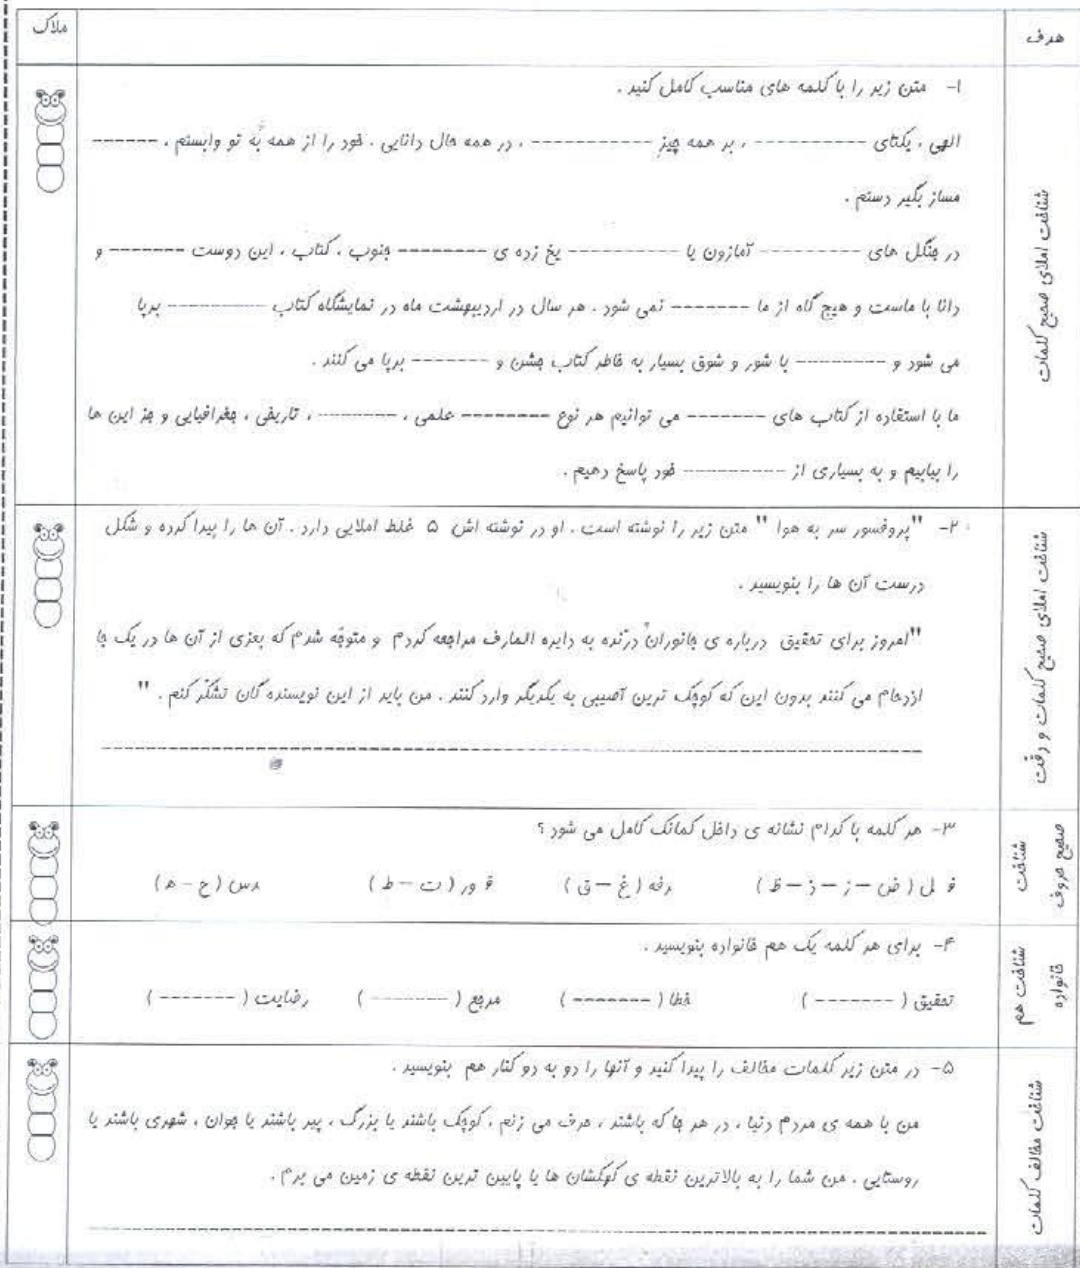 هدف
ملاک
شناخت املای صحیح کلمات
۱- متن زیر را با کلمه های مناسب کامل کنید .
الهی ، یکتای ----------- ، بر همه چیز ------------ ، در همه حال دانایی . خود را از همه به تو وابستم ، ------
مساز بگیر دستم .
در جنگل های ---------- آمازون یا ---------- یخ زده ی --------- جنوب ، کتاب ، این دوست ------- و
دانا با ماست و هیچ گاه از ما -------- نمی شود . هر سال در اردیبهشت ماه در نمایشگاه کتاب ---------- برپا
می شود و --------- با شور و شوق بسیار به خاطر کتاب جشن و -------- برپا می کنند .
ما با استفاده از کتاب های ------- می توانیم هر نوع --------- علمی ، --------- ، تاریخی ، جغرافیایی و جز این ها
را بیابیم و به بسیاری از ----------- خود پاسخ دهیم .
شناخت املای صحیح کلمات و دقت
۲- "پروفسور سر به هوا " متن زیر را نوشته است . او در نوشته اش ۵ غلط املایی دارد . آن ها را پیدا کرده و شکل
درست آن ها را بنویسید .
"امروز برای تحقیق درباره ی جانوران درّنده به دایره المارف مراجعه کردم و متوجّه شدم که بعزی از آن ها در یک جا
ازدهام می کنند بدون این که کوچک ترین آصیبی به یکدیگر وارد کنند . من باید از این نویسنده گان تشکّر کنم . "
شناخت صحیح حروف
۳- هر کلمه با کدام نشانه ی داخل کمانک کامل می شود ؟
ف لی ( ض – ز – ذ – ظ ) دفه ( غ – ق ) خ ور ( ت – ط ) دس ( ح – ه )
شناخت هم خانواده
۴- برای هر کلمه یک هم خانواده بنویسید .
تحقیق ( ------- ) خطا ( ------- ) مرجع ( -------- ) رضایت ( ------- )
شناخت مخالف کلمات
۵- در متن زیر کلمات مخالف را پیدا کنید و آنها را دو به دو کنار هم بنویسید .
من با همه ی مردم دنیا ، در هر جا که باشند ، حرف می زنم ، کوچک باشند یا بزرگ ، پیر باشند یا جوان ، شهری باشند یا
روستایی . من شما را به بالاترین نقطه ی کهکشان ها یا پایین ترین نقطه ی زمین می برم .